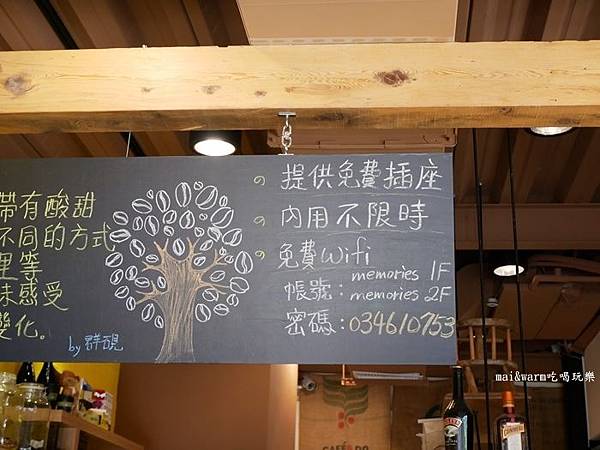 帶有酸甜
不同的方式
里等
味感受
變化。
by 群硯
提供免費插座
內用不限時
免費wifi
memories 1F
帳號：memories 2F
密碼：034610753
mai&warm吃喝玩樂
CAFÉ DO